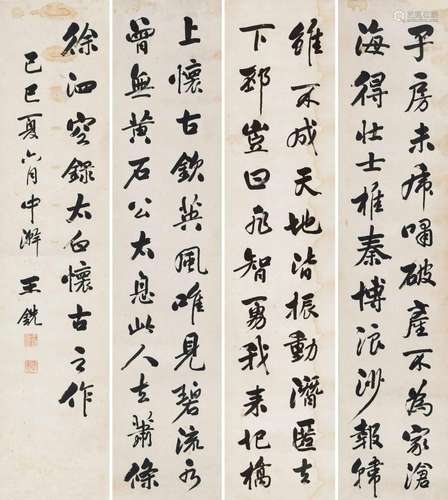 子房未虎嘯破產不為家滄
海得壮士椎秦博浪沙報韓
雖不成天地皆振動潛匿去
下邳豈曰非智勇我来圯橋
上懷古欽英風唯見碧流水
曾無黃石公太息此人去蕭條
徐泗空錄太白懷古之作
己巳夏六月中澣 王銑